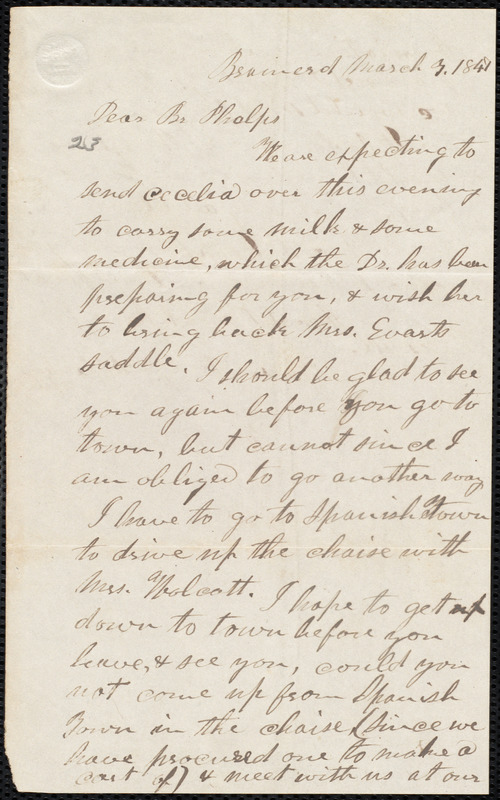 Brainerd March 3, 1841
Dear Br Phelps
23
We are expecting to
send cecelia over this evening
to carry some milk & some
medicine, which the Dr. has been
preparing for you, & wish her
to bring back Mrs. Evarts
saddle. I should be glad to see
you again before you go to
town, but cannot since I
am obliged to go another way
I have to go to Spanish Town
to drive up the chaise with
Mrs. Wolcott. I hope to get
down to town before you
leave, & see you, could you
not come up from Spanish
Town in the chaise, (since we
have procured one to make a
cart of) & meet with us at our